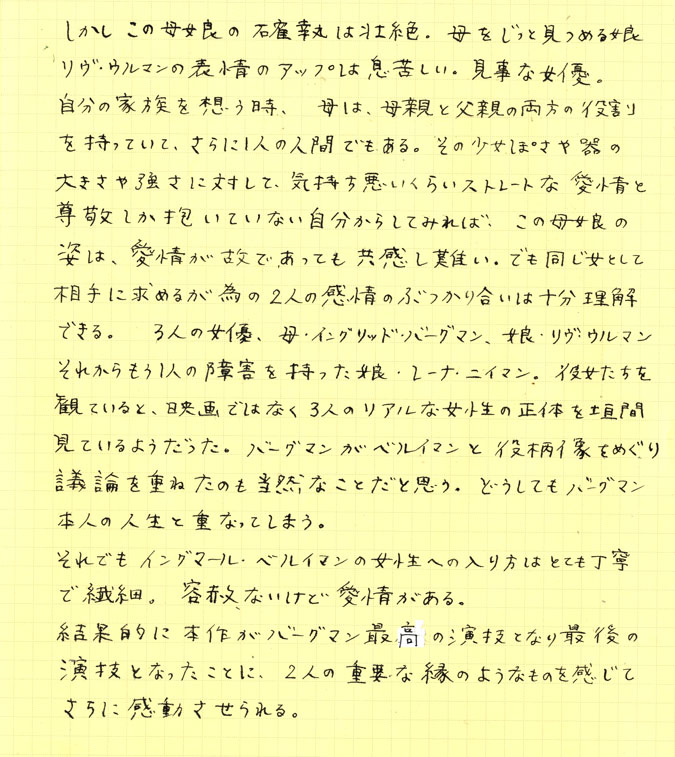 しかし この母娘の 確執は壮絶。母をじっと見つめる娘
リヴ・ウルマンの表情のアップは息苦しい。見事な女優。
自分の家族を想う時、 母は、母親と父親の両方の役割
を持っていて、さらに1人の人間でもある。その少女ぽさや器の
大きさや強さに対して、気持ち悪いくらいストレートな愛情と
尊敬しか抱いていない自分からしてみれば、この母娘の
姿は、愛情が故であっても共感し難い。でも同じ女として
相手に求めるが為の2人の感情のぶつかり合いは十分理解
できる。 3人の女優、母・イングリッド・バーグマン、娘・リヴ・ウルマン
それからもう1人の障害を持った娘・レーナ・ニイマン。彼女たちを
観ていると、映画ではなく3人のリアルな女性の正体を垣間
見ているようだった。バーグマンがベルイマンと役柄像をめぐり
議論を重ねたのも当然なことだと思う。どうしてもバーグマン
本人の人生と重なってしまう。
それでもイングマール・ベルイマンの女性への入り方はとても丁寧
で繊細。容赦ないけど愛情がある。
結果的に本作がバーグマン最高の演技となり最後の
演技となったことに、2人の重要な縁のようなものを感じて
さらに感動させられる。